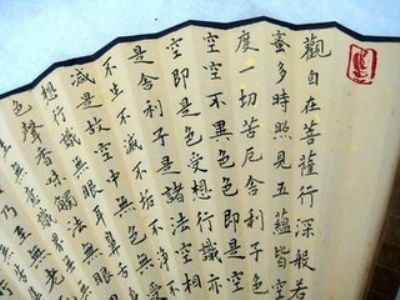 觀自在菩薩行深般若
蜜多時照見五蘊皆空
度一切苦厄舍利子色
空空不異色色即是空
空即是色受想行識亦
是舍利子是諸法空相
不生不滅不垢不淨不
減是故空中無色無受
想行識無眼耳鼻舌
色聲香味觸法無
至無意識界無